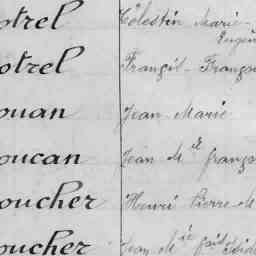 otrel Célestin Marie-
Eugèn
otrel Françil-Franço
ouan Jean Marie
oucan Jean M ie franço
oucher Henri Pierre M
oucher Jean M ie